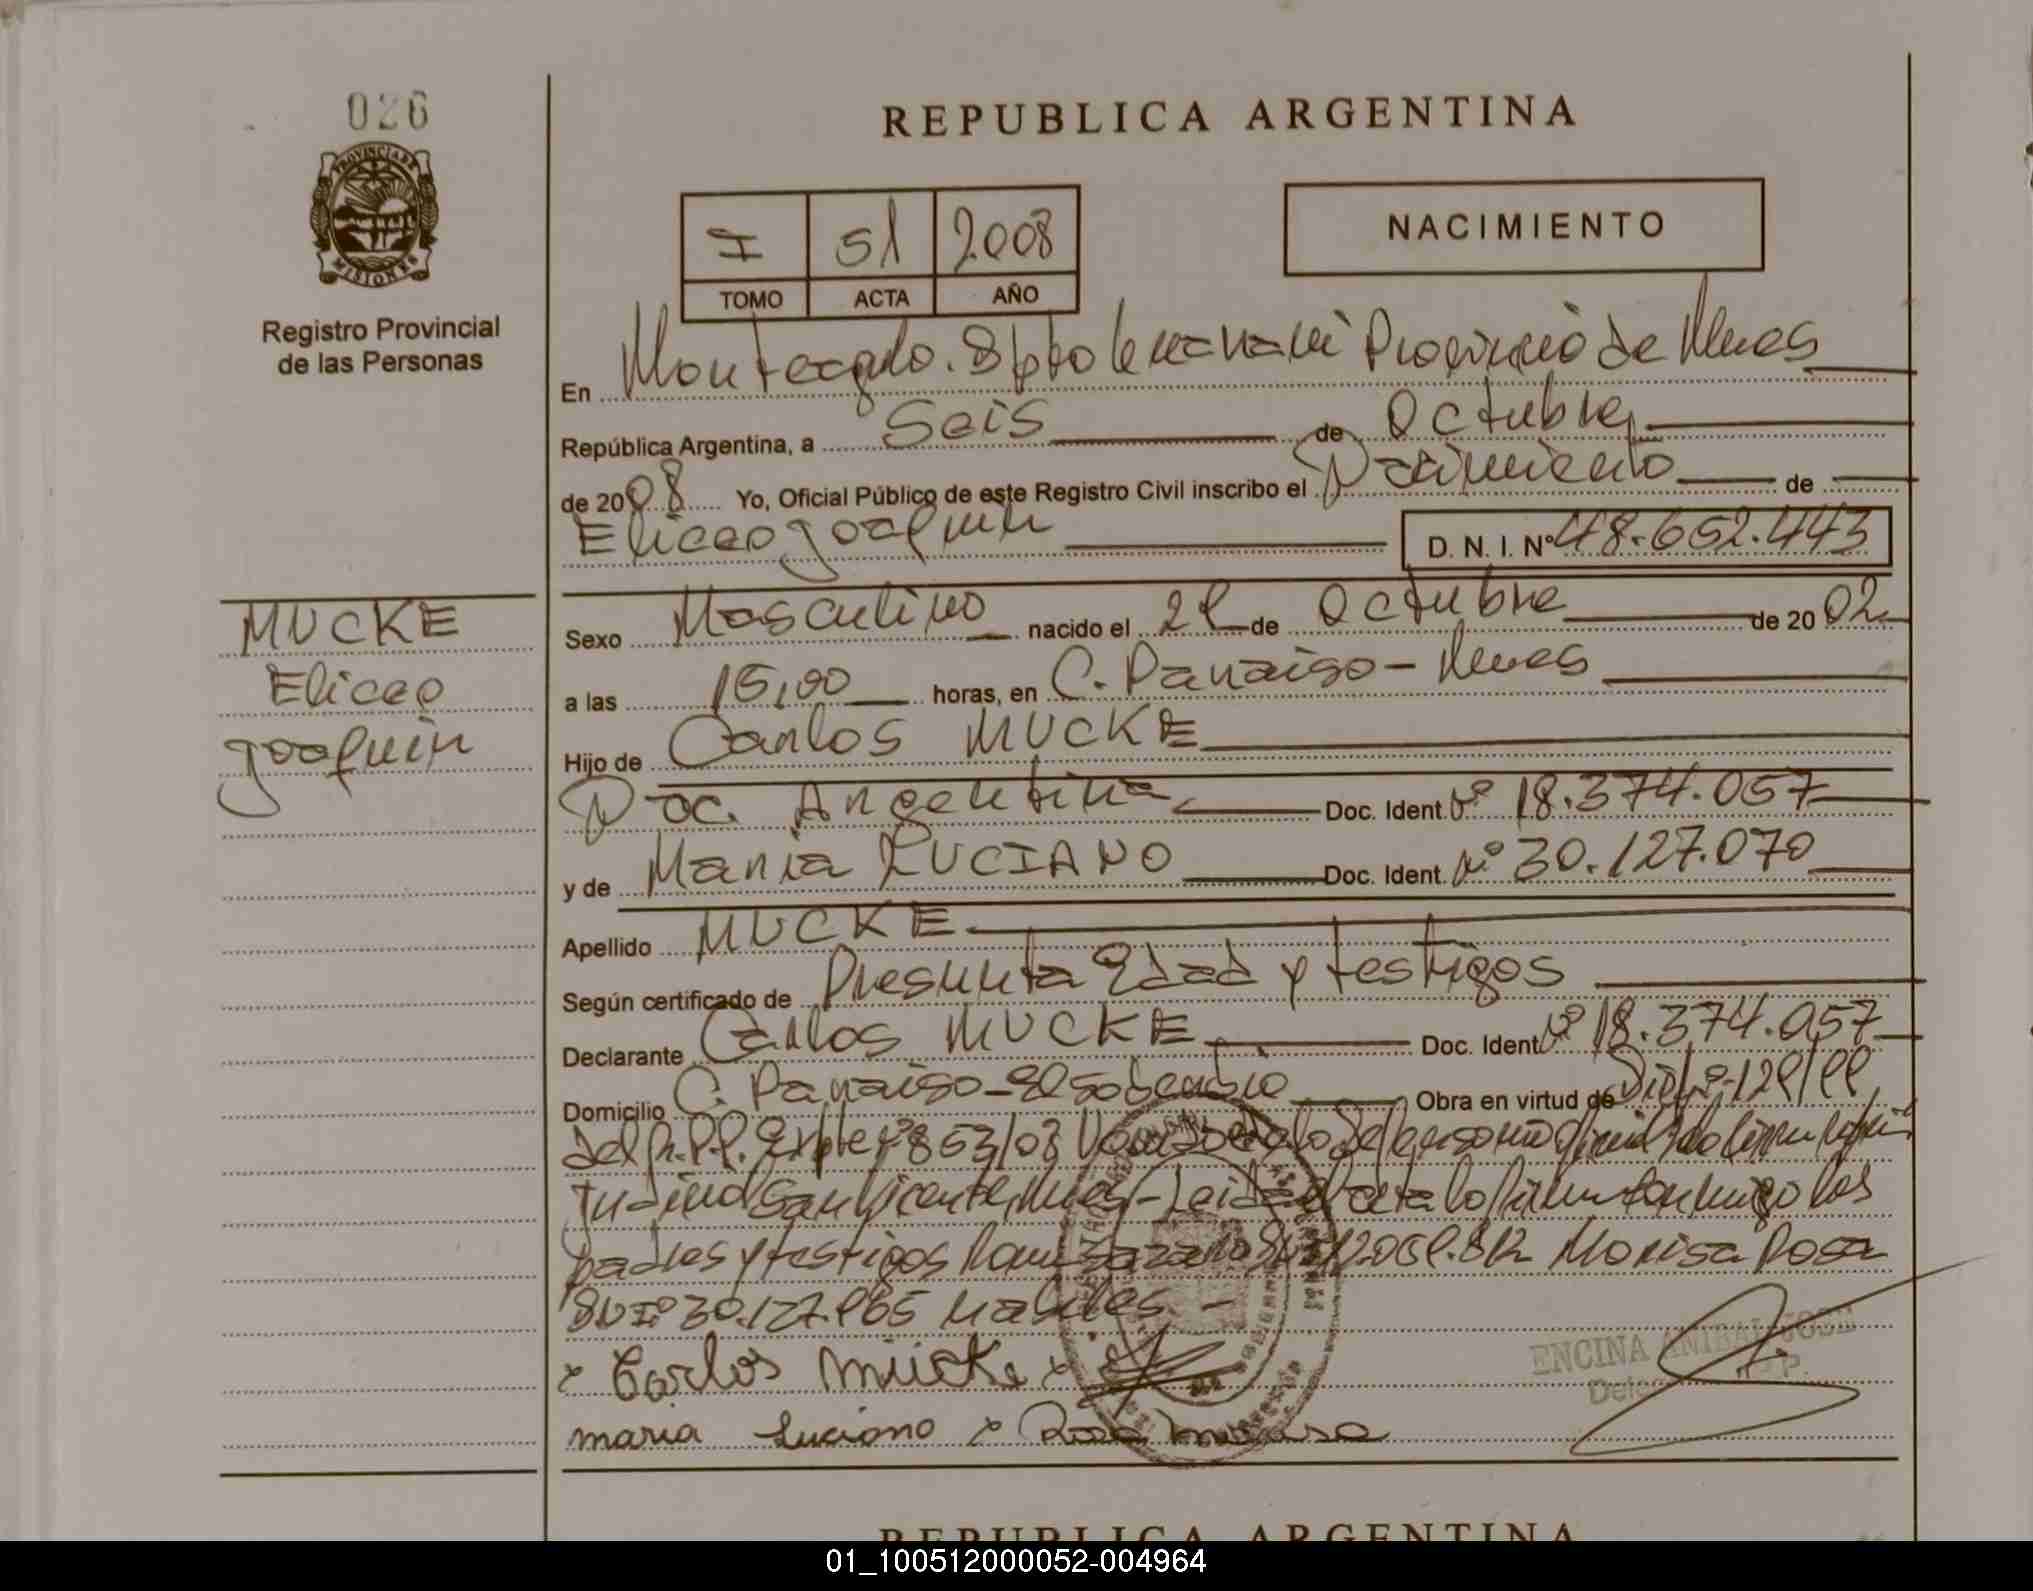 026
PROVINCIA DE
MISIONES
Registro Provincial
de las Personas
REPUBLICA ARGENTINA
I 51 2008
TOMO ACTA AÑO
NACIMIENTO
En Monteagudo. Dpto Guaraní Provincia de Mnes
República Argentina, a Seis de Octubre
de 2008 Yo, Oficial Público de este Registro Civil inscribo el Nacimiento de
Eliceo Joaquin D. N. I. Nº 48.652.443
MUCKE
Eliceo
Joaquin
Sexo Masculino nacido el de Octubre de 2002
a las 15,00 horas, en C. Paraiso - Mnes
Hijo de Carlos MUCKE
Nac. Argentina Doc. Ident. Nº 18.374.057
y de Maria LUCIANO Doc. Ident. Nº 30.127.070
Apellido MUCKE
Según certificado de Presunta Edad y testigos
Declarante Carlos MUCKE Doc. Ident. Nº 18.374.057
Domicilio C. Paraiso - El Soberbio Obra en virtud de
Expte Nº 853/03
San Vicente, Mnes - Leida el acta la firman conmigo los
padres y testigos Morisa Rosa
DNI Nº habiles -
x Carlos Mucke x
maria Luciano x Rosa
ENCINA ANIBAL JOSE
REPUBLICA ARGENTINA
01_100512000052-004964